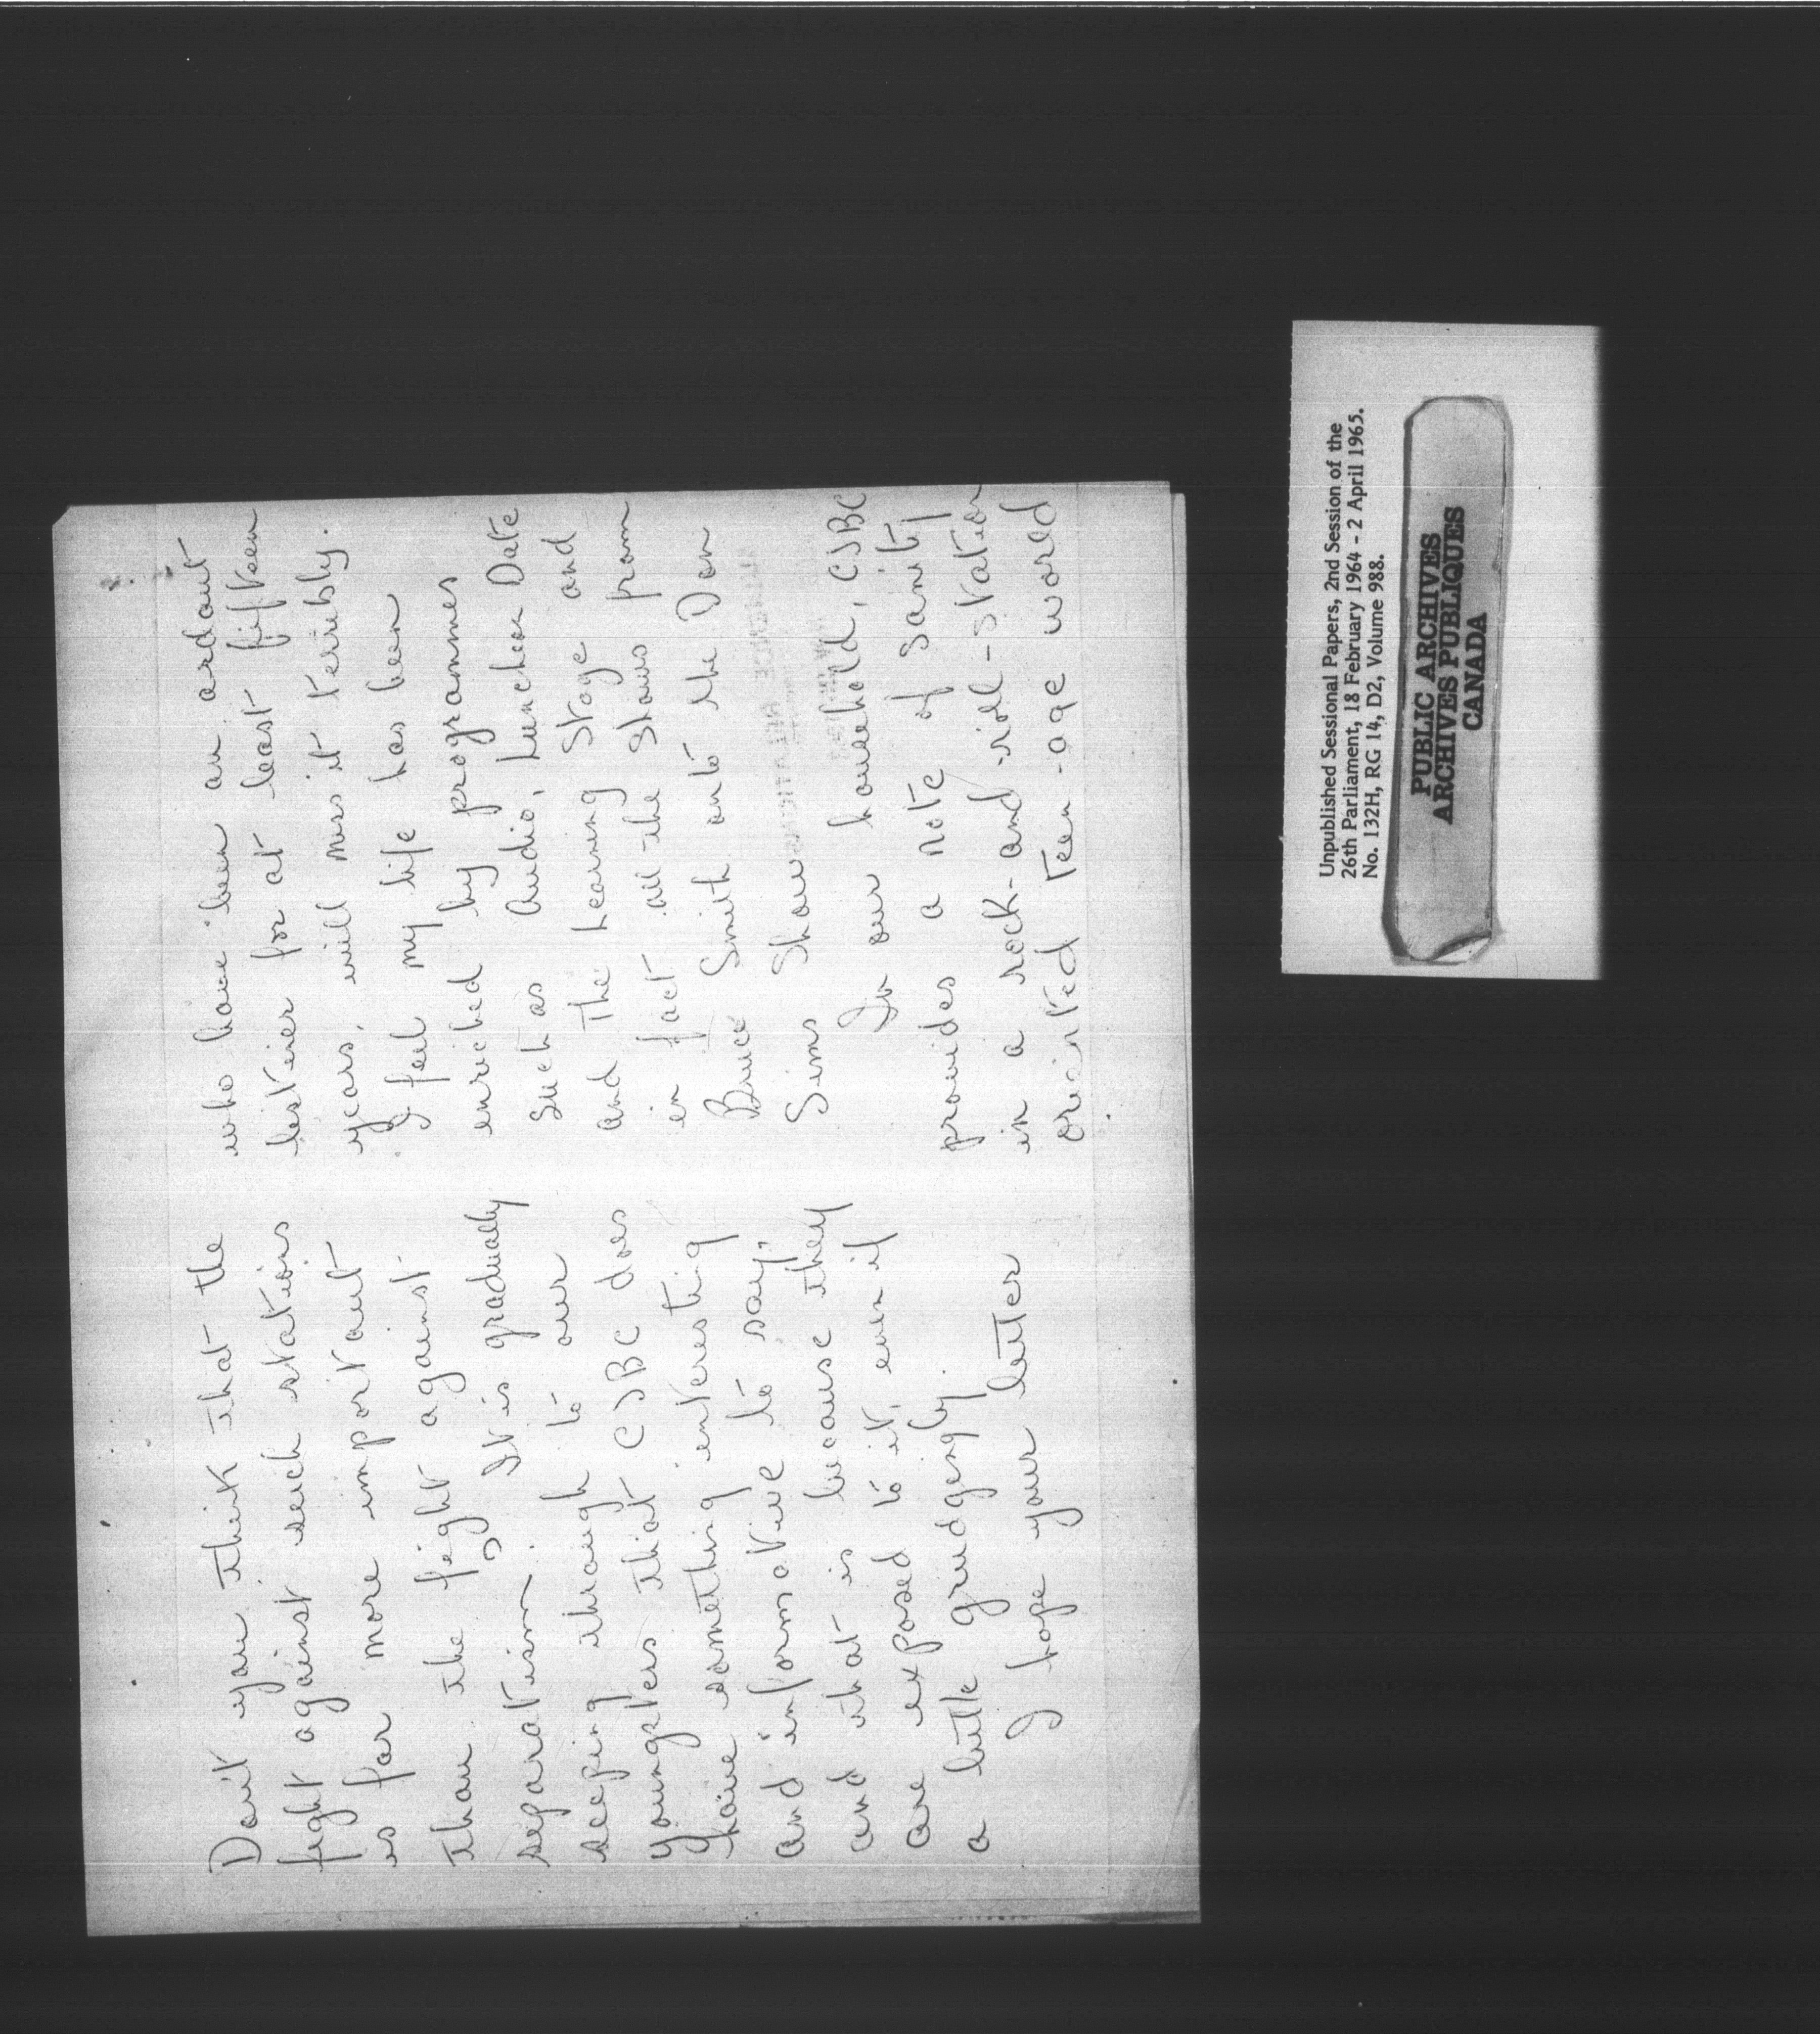 Don't you think that the
fight against such stations
is far more important
than the fight against
separatism. It is gradually
seeping through to our
youngsters that CJBC does
have something interesting
and informative to say,
and that is because they
are exposed to it, even if
a little grudgingly.
I hope your letter
who have been an ardent
listener for at least fifteen
years, will miss it terribly.
I feel my life has been
enriched by programmes
such as Audio, Luncheon Date
and The Learning Stage and
in fact all the shows from
Bruce Smith onto the Don
Sims Show
In our household, CJBC
provides a note of sanity
in a rock-and-roll-station
oriented teen-age world
Unpublished Sessional Papers, 2nd Session of the
26th Parliament, 18 February 1964 - 2 April 1965.
No. 132H, RG 14, D2, Volume 988.
PUBLIC ARCHIVES
ARCHIVES PUBLIQUES
CANADA